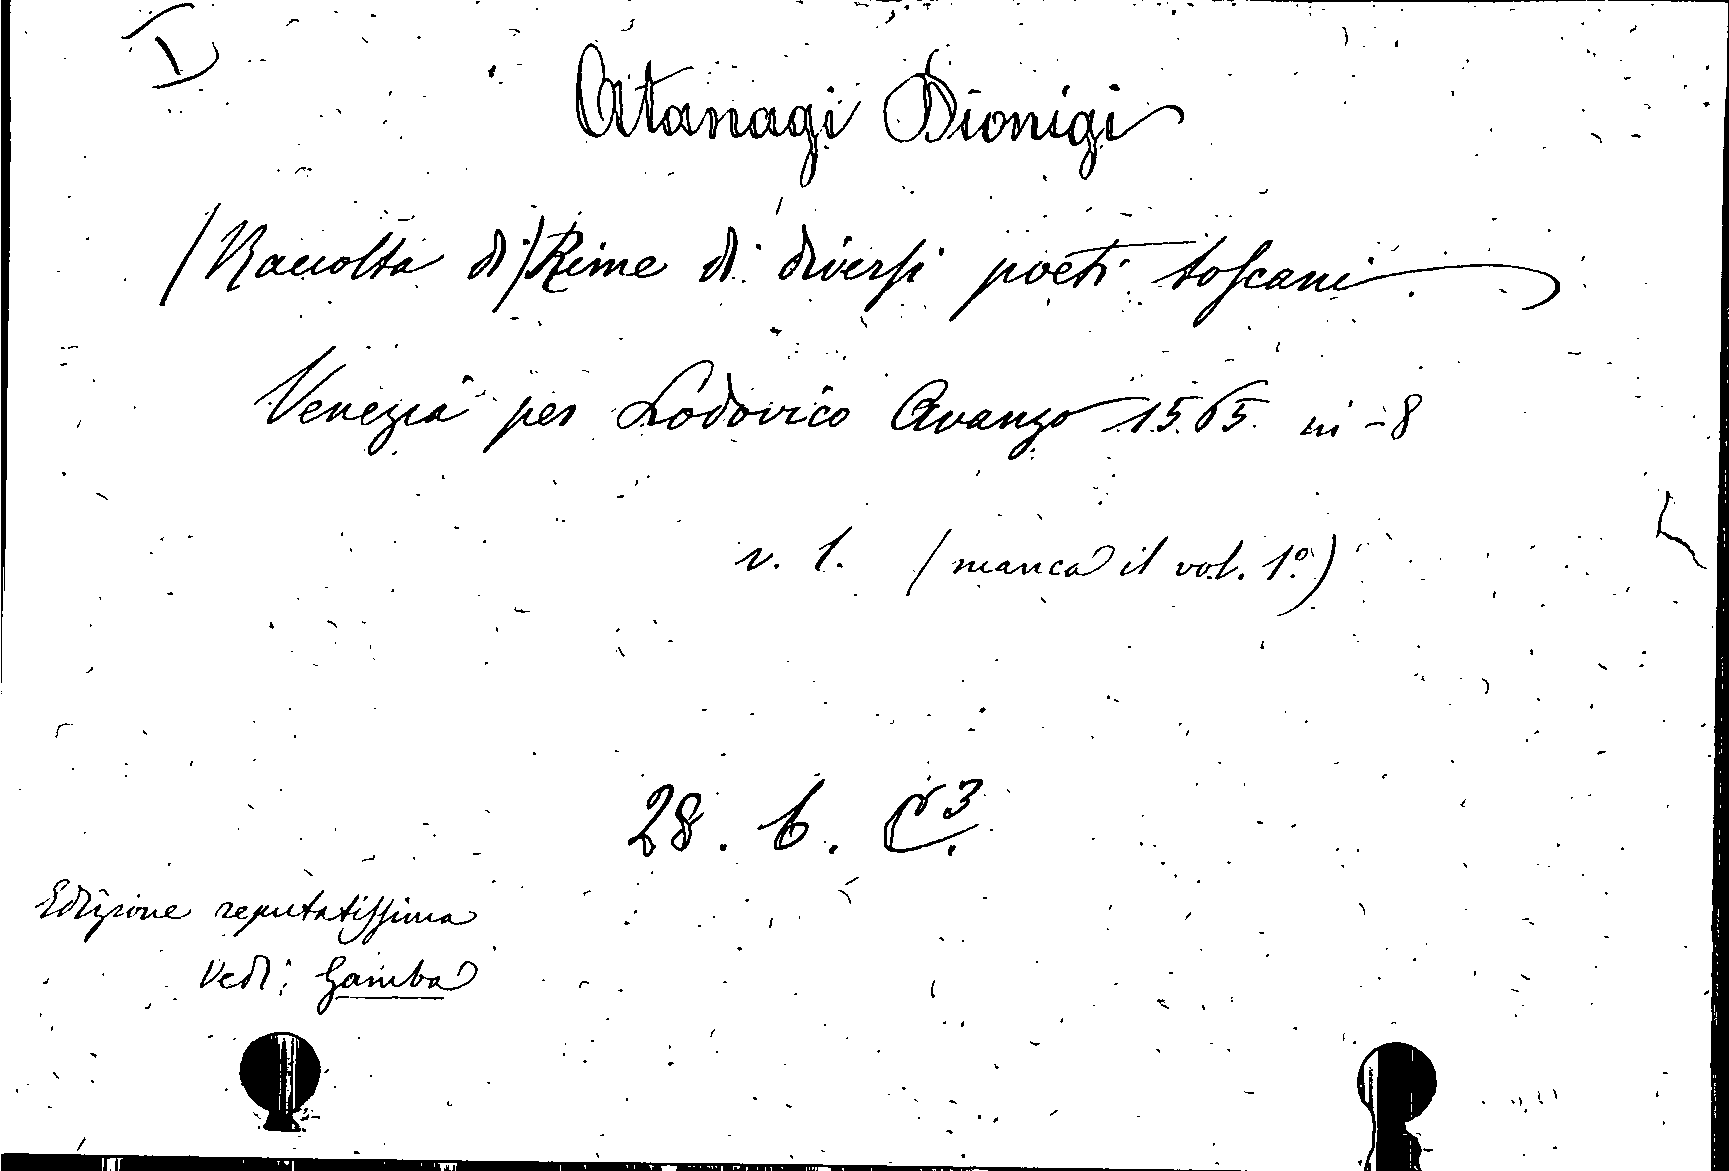 I
Atanagi Dionigi
(Raccolta di) Rime di diversi poeti toscani
Venezia per Lodovico Avanzo 1565 in-8
v. 1. (manca il vol. 1º)
28. b. C³.
Edizione reputatissima
Vedi: Gamba